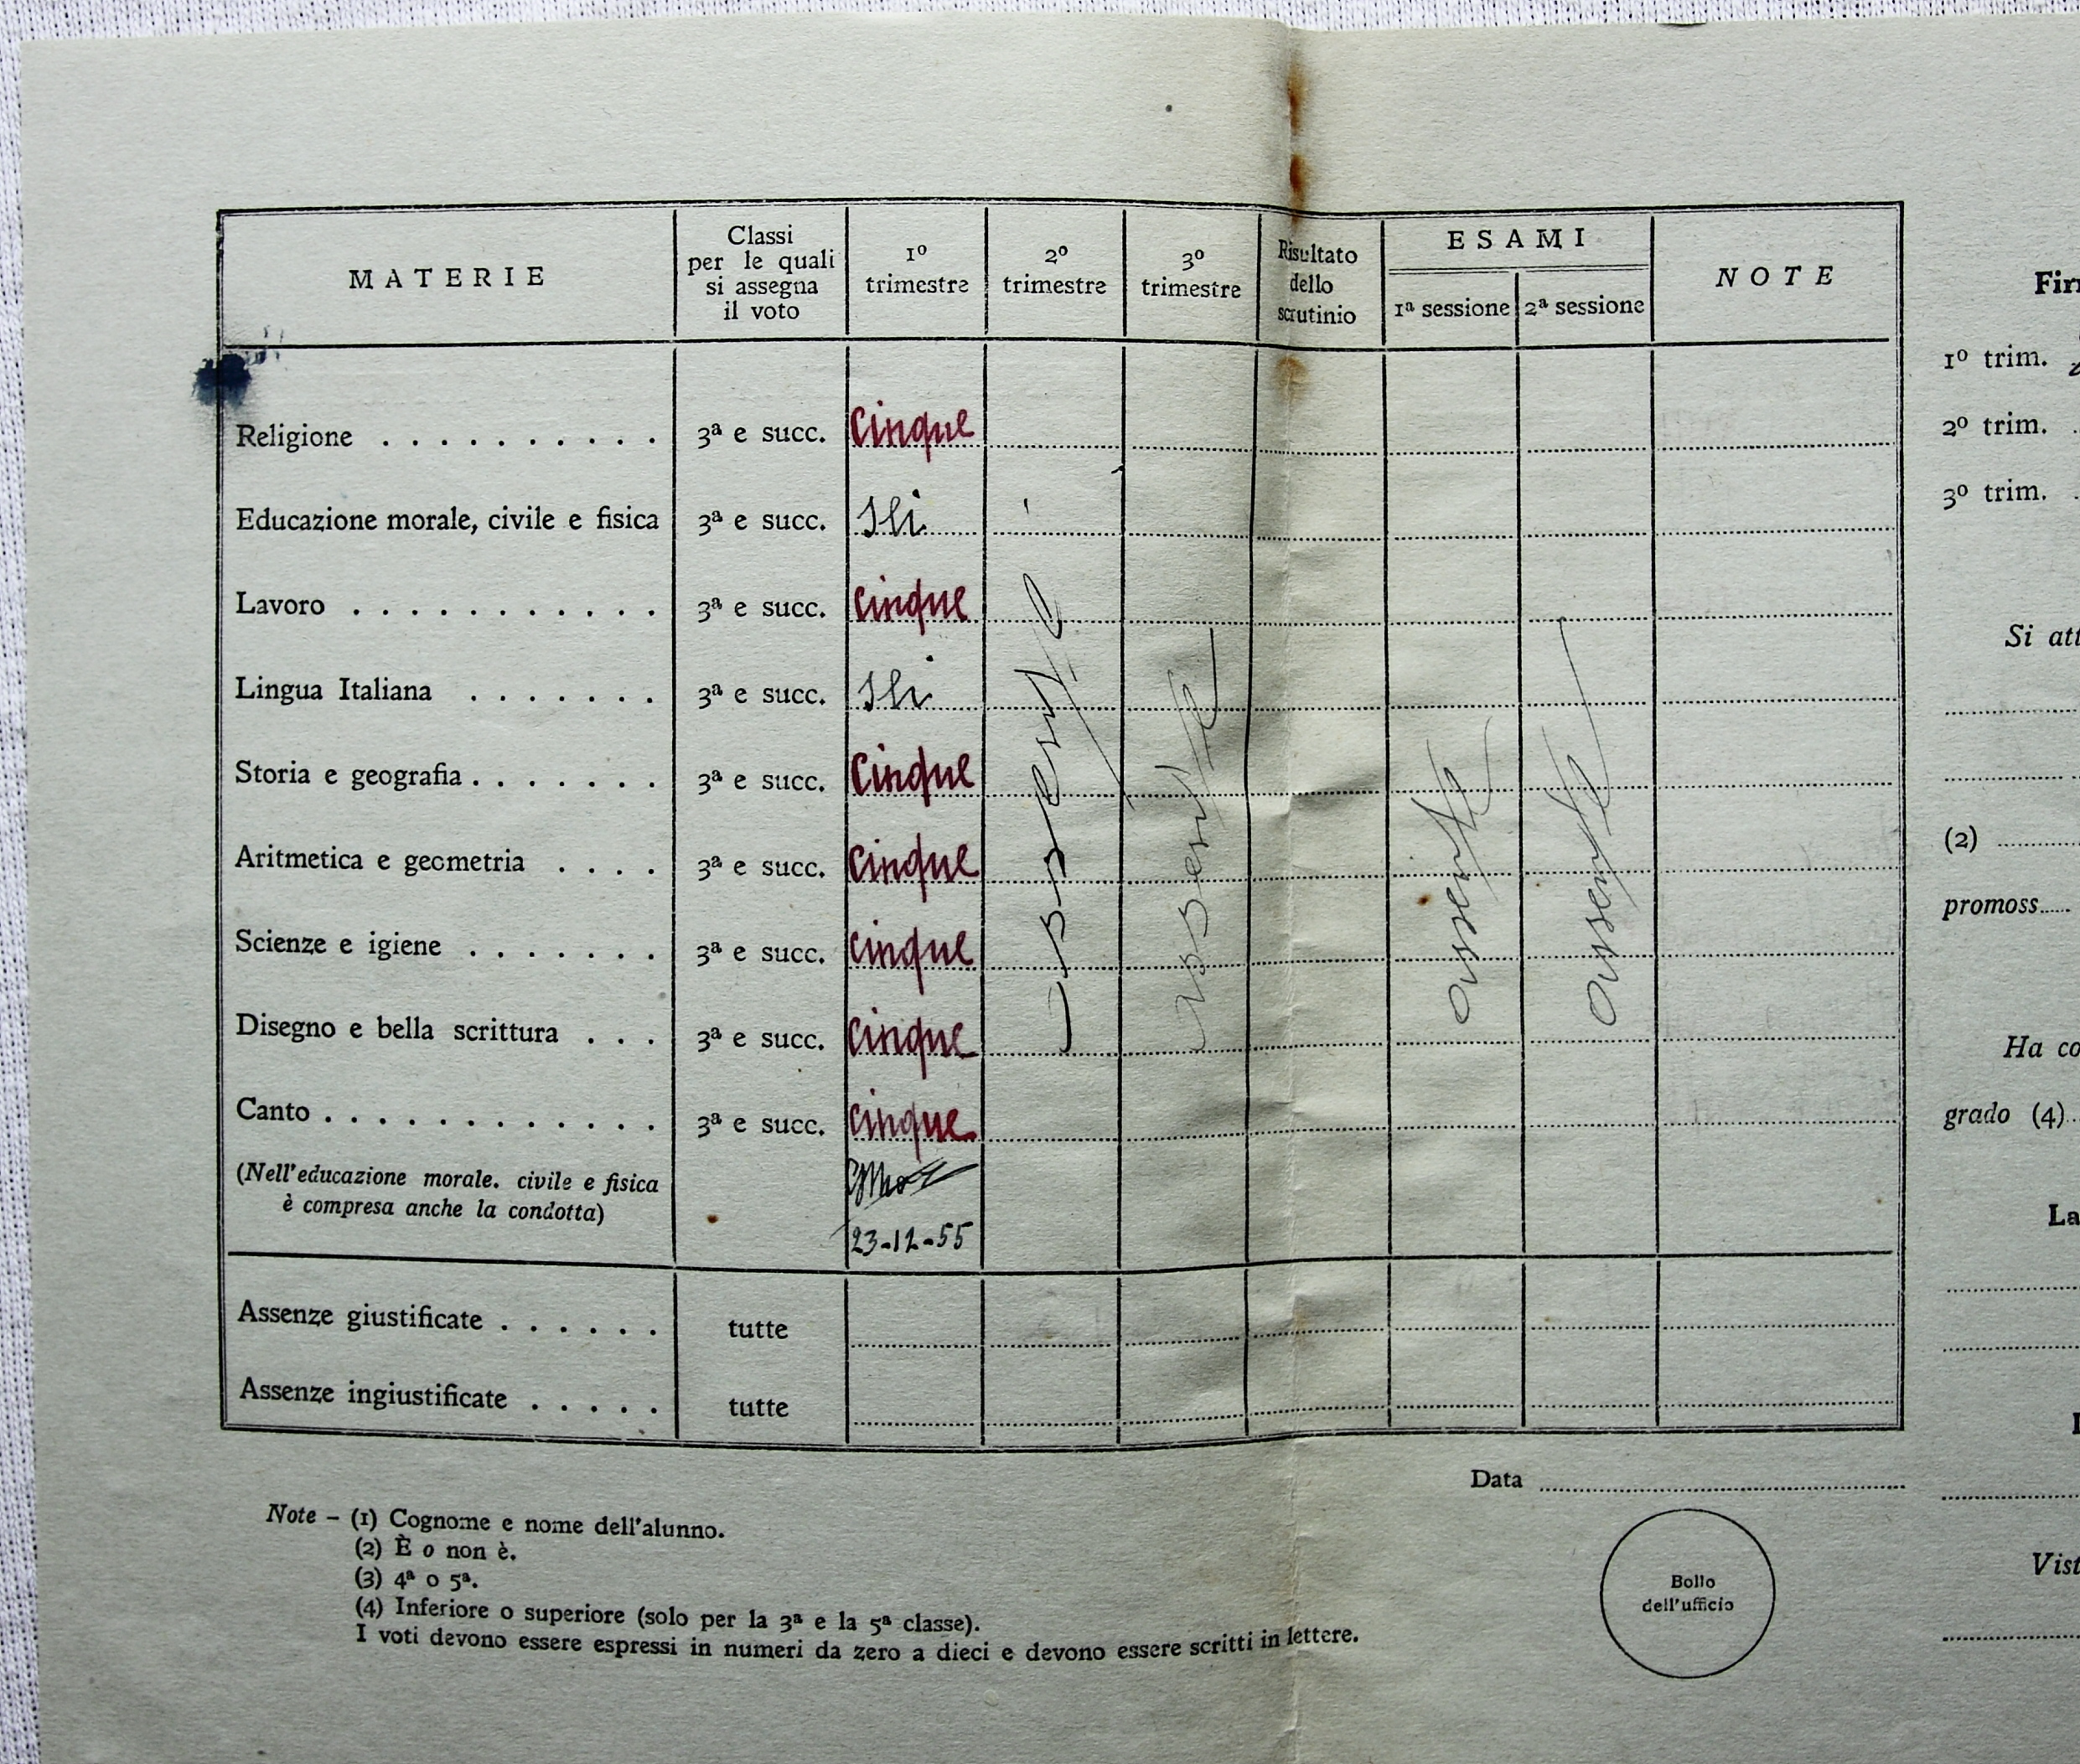 MATERIE
Classi
per le quali
si assegna
il voto
1º
trimestre
2º
trimestre
3º
trimestre
Risultato
dello
scrutinio
ESAMI
1ª sessione
2ª sessione
NOTE
Religione . . . . . . . . . . 3ª e succ. Cinque
Educazione morale, civile e fisica 3ª e succ.
Lavoro . . . . . . . . . . . 3ª e succ. Cinque
Lingua Italiana . . . . . . . 3ª e succ.
Storia e geografia . . . . . . . 3ª e succ. Cinque
Aritmetica e geometria . . . . 3ª e succ. Cinque
Scienze e igiene . . . . . . . 3ª e succ. Cinque
Disegno e bella scrittura . . . 3ª e succ. Cinque
Canto . . . . . . . . . . . . 3ª e succ. Cinque
(Nell'educazione morale. civile e fisica
è compresa anche la condotta)
23-12-55
assente
assente
assente
assente
Assenze giustificate . . . . . . tutte
Assenze ingiustificate . . . . . tutte
Data
Note – (1) Cognome e nome dell'alunno.
(2) È o non è.
(3) 4ª o 5ª.
(4) Inferiore o superiore (solo per la 3ª e la 5ª classe).
I voti devono essere espressi in numeri da zero a dieci e devono essere scritti in lettere.
Bollo
dell'ufficio
Fir
1º trim.
2º trim.
3º trim.
Si att
(2)
promoss
Ha co
grado (4)
La
Vist